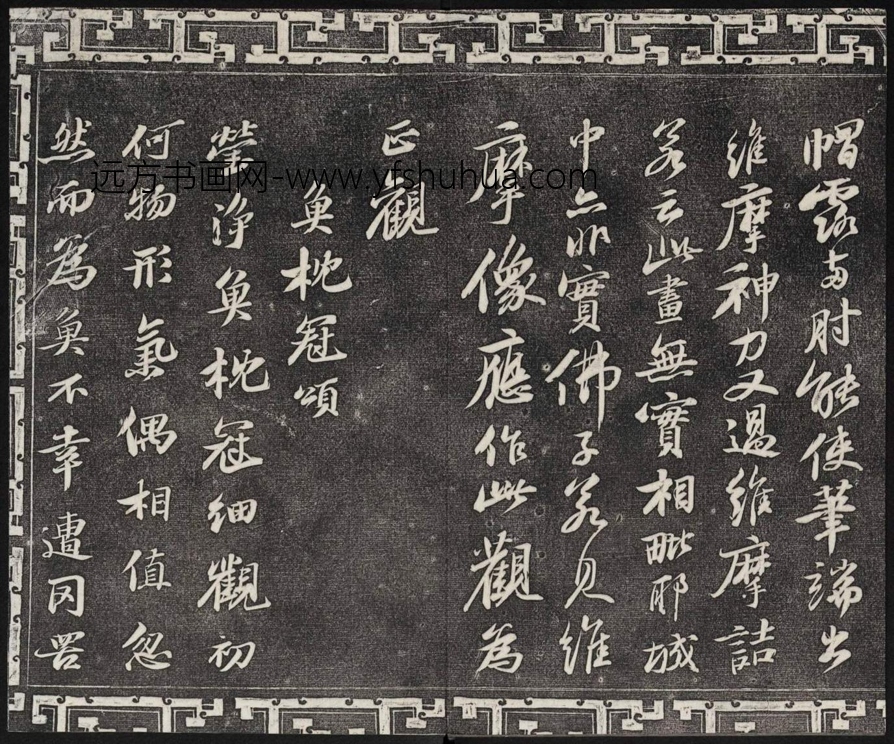 帽露两肘能使筆端出
維摩神力又過維摩詰
若云此畫無實相毗耶城
中亦非實佛子若見維
摩像應作此觀為
正觀
魚枕冠頌
瑩淨魚枕冠細觀初
何物形氣偶相值忽
然而為魚不幸遭罔罟
远方书画网-www.yfshuhua.com